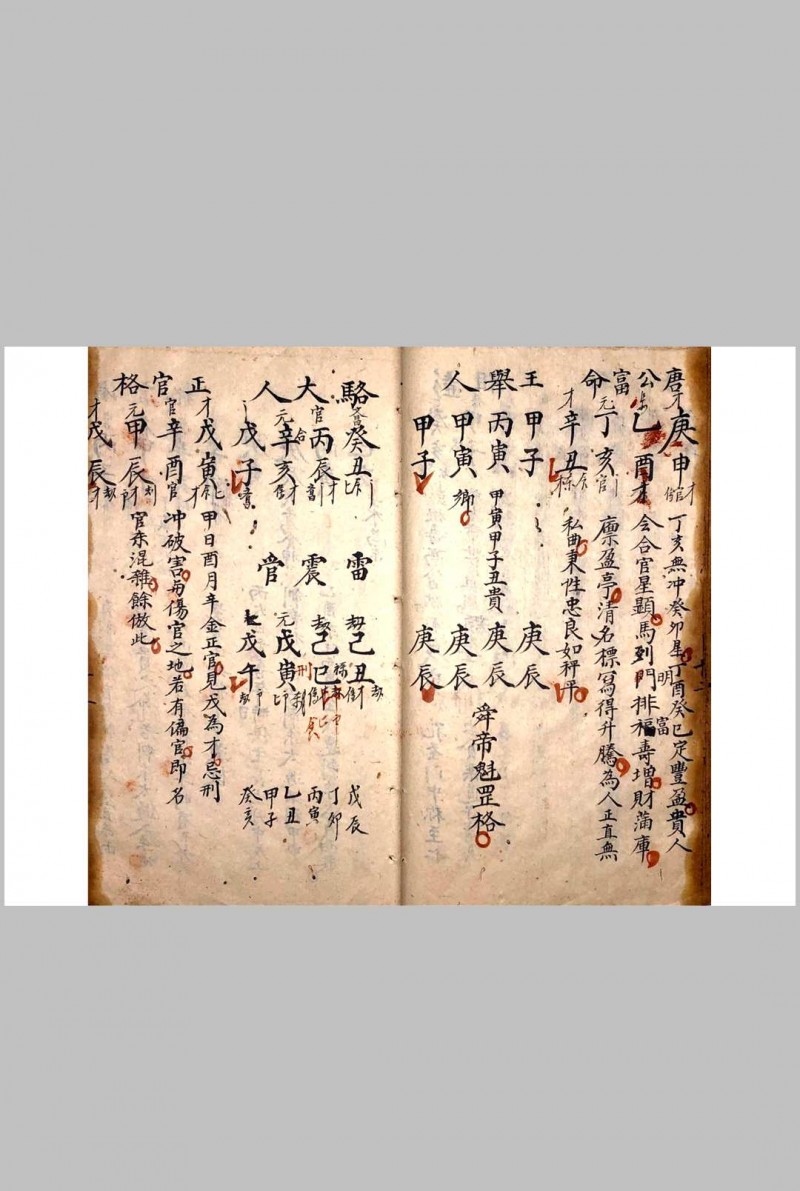 唐公富命
庚申
乙酉
丁亥
辛丑
丁亥無冲癸卯星丁酉癸巳定豐盈貴人
会合官星顯馬到門排福壽增財滿庫
廪盈亭清名標寫得升騰為人正直無
私曲秉性忠良如秤平
明
富
王舉人
甲子
丙寅
甲寅
甲子
鄉
甲寅甲子丑貴
庚辰
庚辰
庚辰
庚辰
舜帝魁罡格
駱大人
癸丑
丙辰
辛亥
戊子
雷震管
己丑
己巳
戊寅
戊午
戊辰
丁卯
丙寅
乙丑
甲子
癸亥
正官格
戊寅
辛酉
甲辰
戊辰
甲日酉月辛金正官見戊為才忌刑
冲破害每傷官之地若有偏官即名
官杀混雜餘倣此